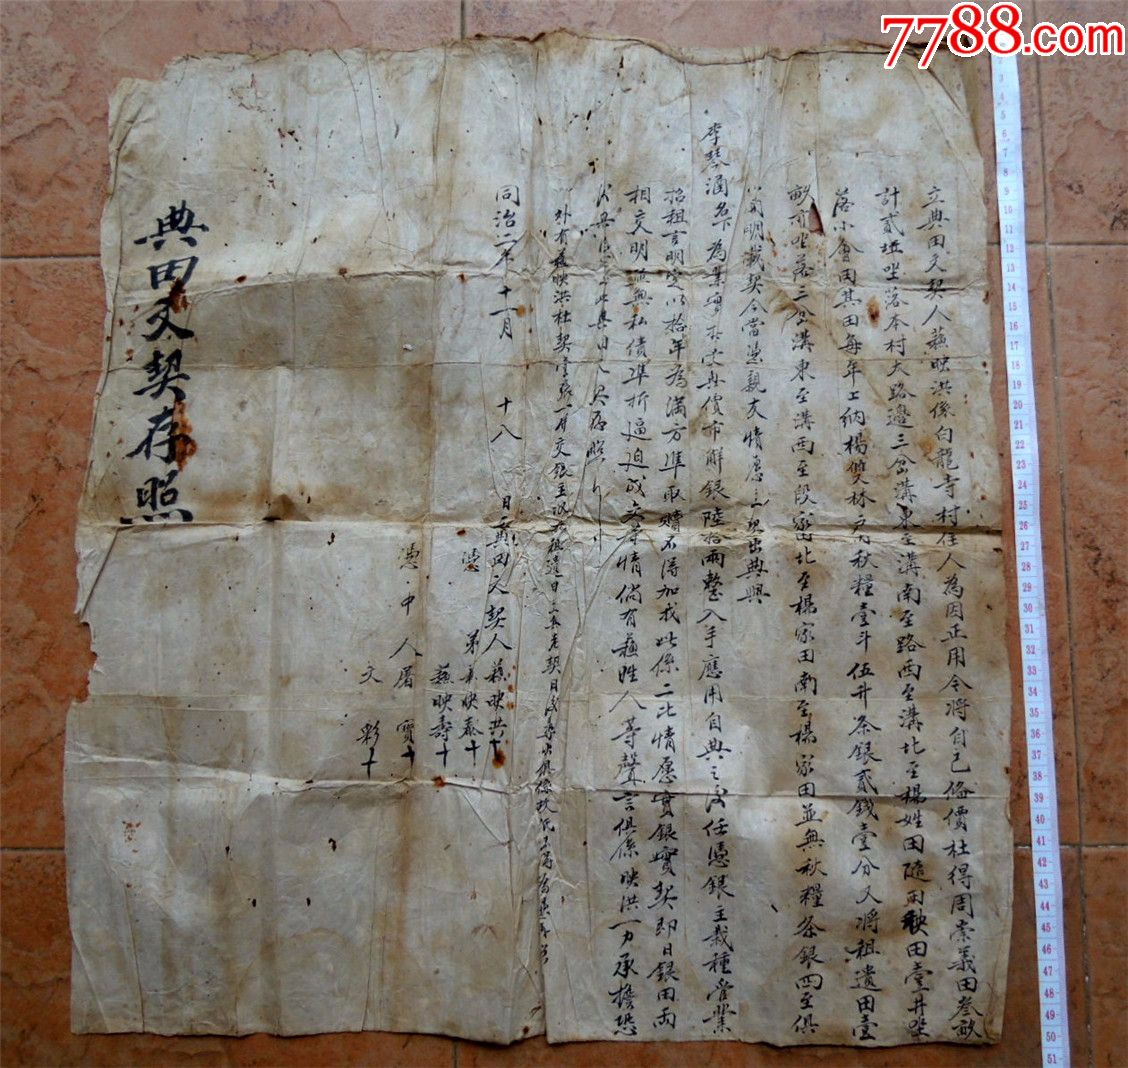 7788.com
立典田文契人蘇映洪係白龍寺村住人為因正用今將自己備價杜得周崇義田叁畝
計貳坵坐落本村大路邊三岔溝東至溝南至路西至溝北至楊姓田隨田秧田壹井坐
落小會田其田每年上納楊雙林戶秋糧壹斗伍升条銀貳錢壹分又將祖遺田壹
畝坐落三岔溝東至溝西至段家田北至楊家田南至楊家田並無秋糧条銀四至俱
開明載契今當憑親友情愿立契出典與
李琴涵名下為業實典價市觧銀陸拾兩整入手應用自典之後任憑銀主栽種管業
招租言明定以拾年為滿方準取贖不得加找此係二比情愿實銀實契即日銀田兩
相交明並無私債準折逼迫成交等情倘有蘇姓人等聲言俱係映洪一力承擔恐
後典田文契存照
外有蘇映洪杜契壹張一并交銀主
同治二年十一月十八日典田文契人蘇映洪十
憑弟蘇映泰十
蘇映壽十
憑中人屠寶十
文彩十
典田文契存照